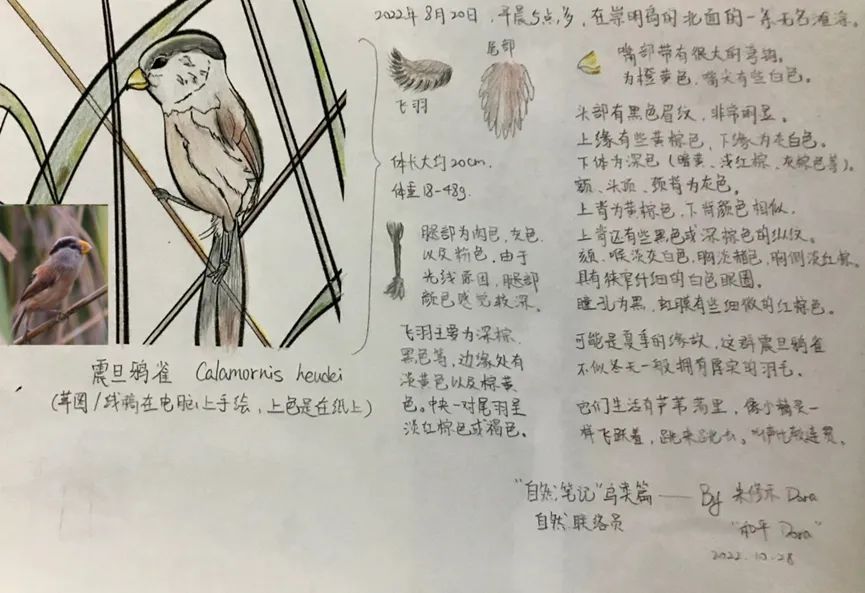 2022年8月20日，早晨5点多，在崇明岛的北面的一条无名港湾。
飞羽
尾部
嘴部带有很大的弯钩。
为橙黄色，嘴尖有些白色。
体长大约20cm.
体重18-48g.
腿部为肉色，灰色
以及粉色，由于
光线原因，腿部
颜色感觉较深。
飞羽主要为深棕、
黑色等，边缘处有
淡黄色以及棕黄
色。中央一对尾羽呈
淡红棕色或褐色。
头部有黑色眉纹，非常明显。
上缘有些黄棕色，下缘为灰白色。
下体为深色（暗黄、浅红棕、灰棕色等）。
额、头顶、颈背为灰色。
上背为黄棕色，下背颜色相似，
上背还有些黑色或深棕色的纵纹。
颏、喉淡灰白色，胸淡褐色，胸侧淡红棕。
具有狭窄纤细的白色眼圈。
瞳孔为黑，虹膜有些细微的红棕色。
可能是夏季的缘故，这群震旦鸦雀
不似冬天一般拥有厚实的羽毛。
它们生活有芦苇荡里，像小精灵一
样飞跃着，跳来跳去。
震旦鸦雀 Calamornis heudei
（草图/线稿在电脑上手绘，上色是在纸上）
“自然笔记”鸟类篇 —— By 朱修 Dora
自然联络员
“和平 Dora”
2022.10.28